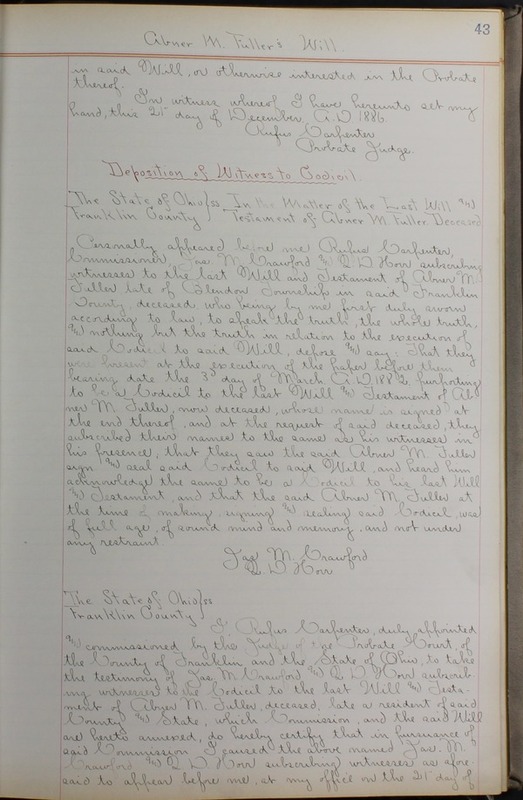 43
Abner M. Fuller's Will.
in said Will, or otherwise interested in the Probate
thereof.
In witness whereof I have hereunto set my
hand, this 21st day of December, A.D. 1886.
Rufus Carpenter
Probate Judge.
Deposition of Witness to Codicil.
The State of Ohio }ss In the Matter of the Last Will and
Franklin County } Testament of Abner M. Fuller Deceased
Personally appeared before me Rufus Carpenter,
Commissioner, Jas. M. Crawford and Q D Horr subscribing
witnesses to the last Will and Testament of Abner M.
Fuller late of Blendon Township in said Franklin
County, deceased who being by me first duly sworn
according to law, to speak the truth, the whole truth,
and nothing but the truth in relation to the execution of
said Codicil to said Will, depose and say: That they
were present at the execution of the paper before them
bearing date the 3rd day of March A.D. 1882, purporting
to be a Codicil to the last Will and Testament of Ab
ner M. Fuller, now deceased, whose name is signed at
the end thereof, and at the request of said deceased, they
subscribed their names to the same as his witnesses in
his presence, that they saw the said Abner M. Fuller
sign and seal said Codicil to said Will, and heard him
acknowledge the same to be a Codicil to his last Will
and Testament, and that the said Abner M. Fuller at
the time of making, signing and sealing said Codicil, was
of full age, of sound mind and memory, and not under
any restraint.
Jas. M. Crawford
Q. D Horr
The State of Ohio }ss
Franklin County }
I Rufus Carpenter, duly appointed
and commissioned by the Judge of the Probate Court, of
the County of Franklin and the State of Ohio, to take
the testimony of Jas. M. Crawford and Q D Horr subscrib-
ing witnesses to the Codicil to the last Will and Testa-
ment of Abner M. Fuller, deceased, late a resident of said
County and State, which Commission, and the said Will
are hereto annexed, do hereby certify that in pursuance of
said Commission I caused the above named Jas. M.
Crawford and Q D Horr subscribing witnesses as afore-
said to appear before me, at my office on the 21st day of